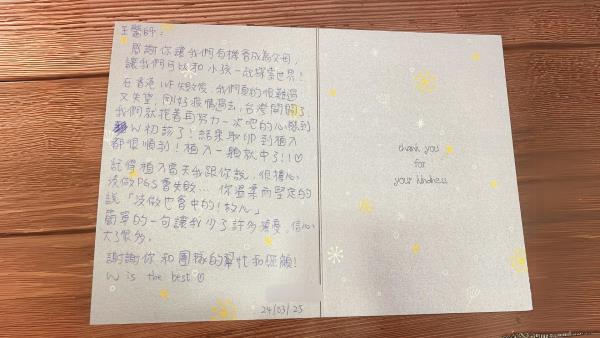 王醫師：
感謝你讓我們有機會成為父母，
讓我們可以和小孩一起探索世界！
在香港IVF失敗後，我們真的很難過
又失望，剛好疫情過去，台灣開關了，
我們就抱著再努力一次吧的心態到
W初診了！結果取卵到植入
都很順利！植入一顆就中了！！♡
記得植入當天我跟你說，很擔心
沒做PGS會失敗... 你溫柔而堅定的
說「沒做也會中的！放心」
簡單的一句讓我少了許多擔憂，信心
大了很多。
謝謝你和團隊的幫忙和照顧！
W is the best ♡
24/03/25
thank you
for
your kindness